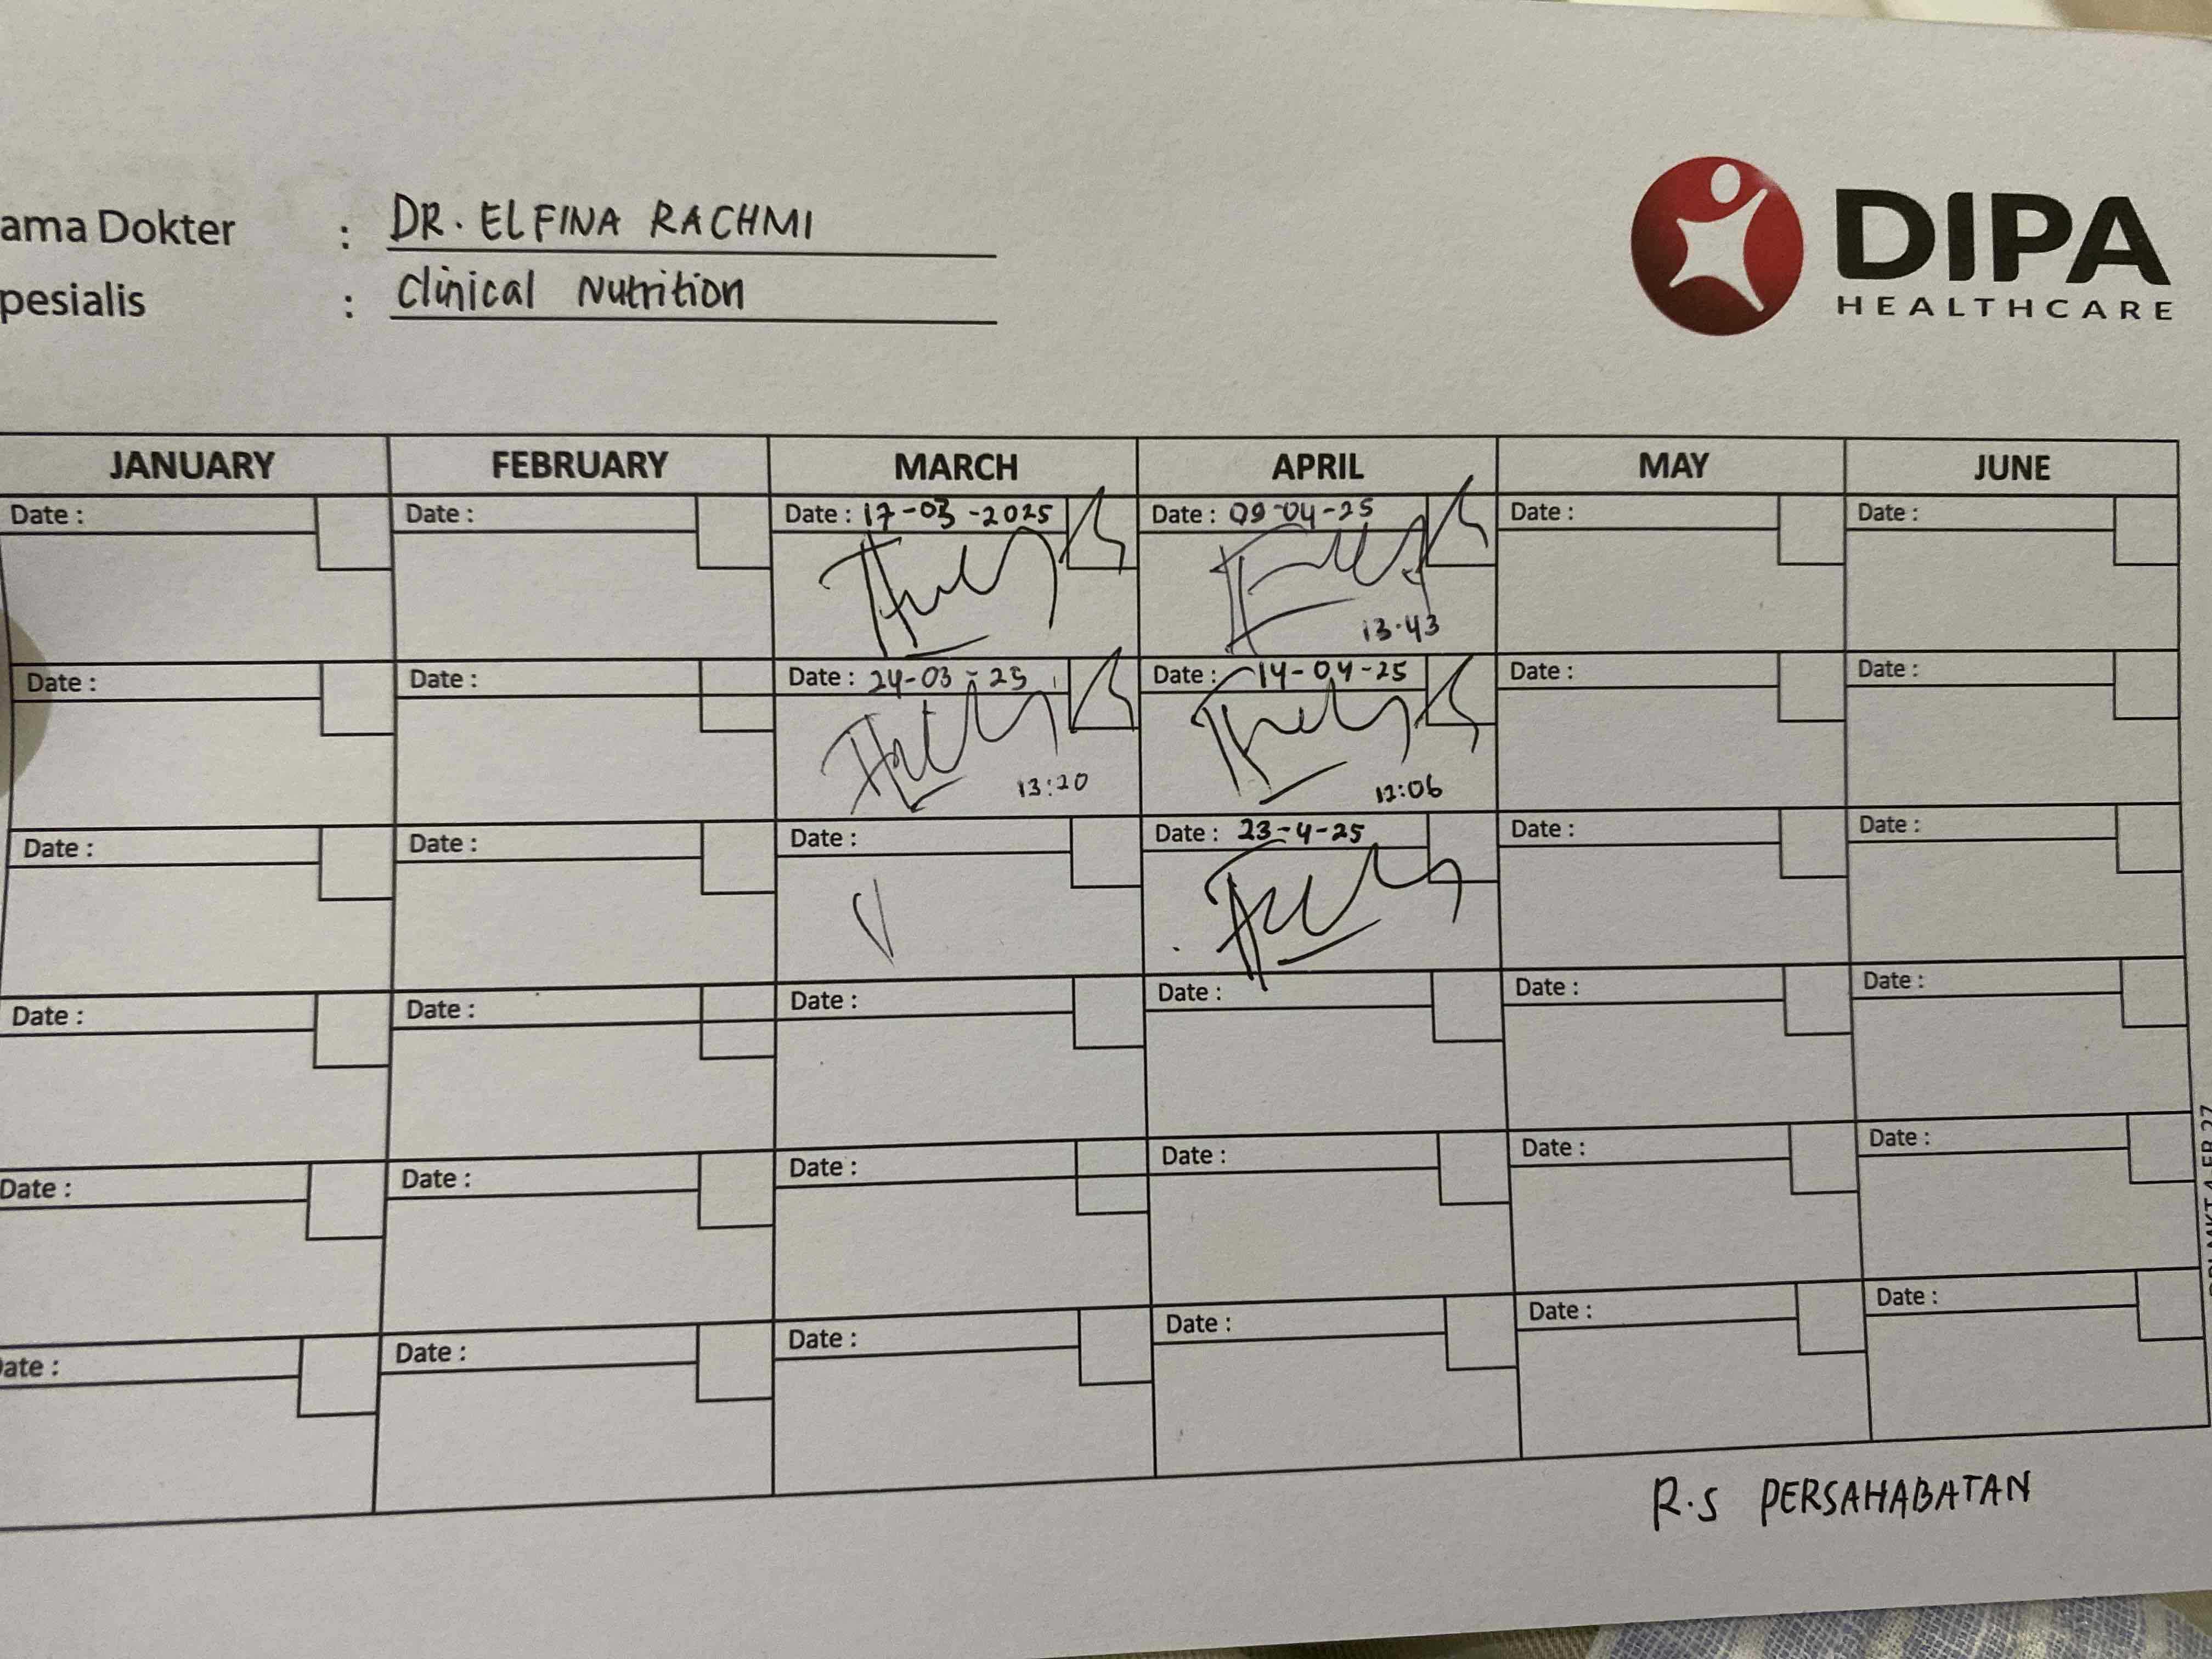 ama Dokter : DR. ELFINA RACHMI
pesialis : Clinical Nutrition
DIPA
HEALTHCARE
JANUARY FEBRUARY MARCH APRIL MAY JUNE
Date : Date : Date : 17-03-2025 Date : 09-04-25 Date : Date :
13.43
Date : Date : Date : 24-03-25 Date : 14-04-25 Date : Date :
13:20 12:06
Date : Date : Date : Date : 23-4-25 Date : Date :
Date : Date : Date : Date : Date : Date :
Date : Date : Date : Date : Date : Date :
ate : Date : Date : Date : Date : Date :
R.S PERSAHABATAN